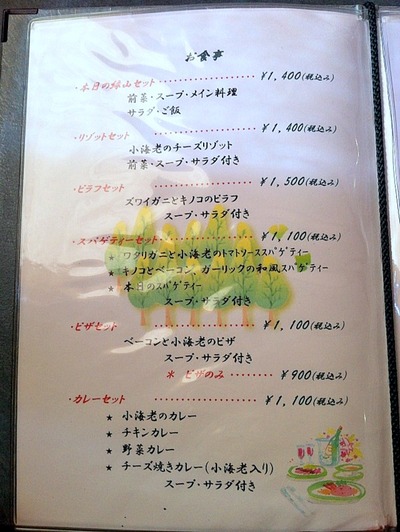 お食事
・本日の緑山セット ・・・・・・・・・・・・・・ ¥1,400(税込み)
前菜・スープ・メイン料理
サラダ・ご飯
・リゾットセット ・・・・・・・・・・・・・・ ¥1,400(税込み)
小海老のチーズリゾット
前菜・スープ・サラダ付き
・ピラフセット ・・・・・・・・・・・・・・ ¥1,500(税込み)
ズワイガニとキノコのピラフ
スープ・サラダ付き
・スパゲティーセット ・・・・・・・・・・・・・・ ¥1,100(税込み)
ワタリガニと小海老のトマトソーススパゲティー
★ キノコとベーコン、ガーリックの和風スパゲティー
★ 本日のスパゲティー
スープ・サラダ付き
・ピザセット ・・・・・・・・・・・・・・ ¥1,100(税込み)
ベーコンと小海老のピザ
スープ・サラダ付き
* ピザのみ ・・・・・・・・ ¥900(税込み)
・カレーセット ・・・・・・・・・・・・・・ ¥1,100(税込み)
★ 小海老のカレー
★ チキンカレー
★ 野菜カレー
★ チーズ焼きカレー(小海老入り)
スープ・サラダ付き